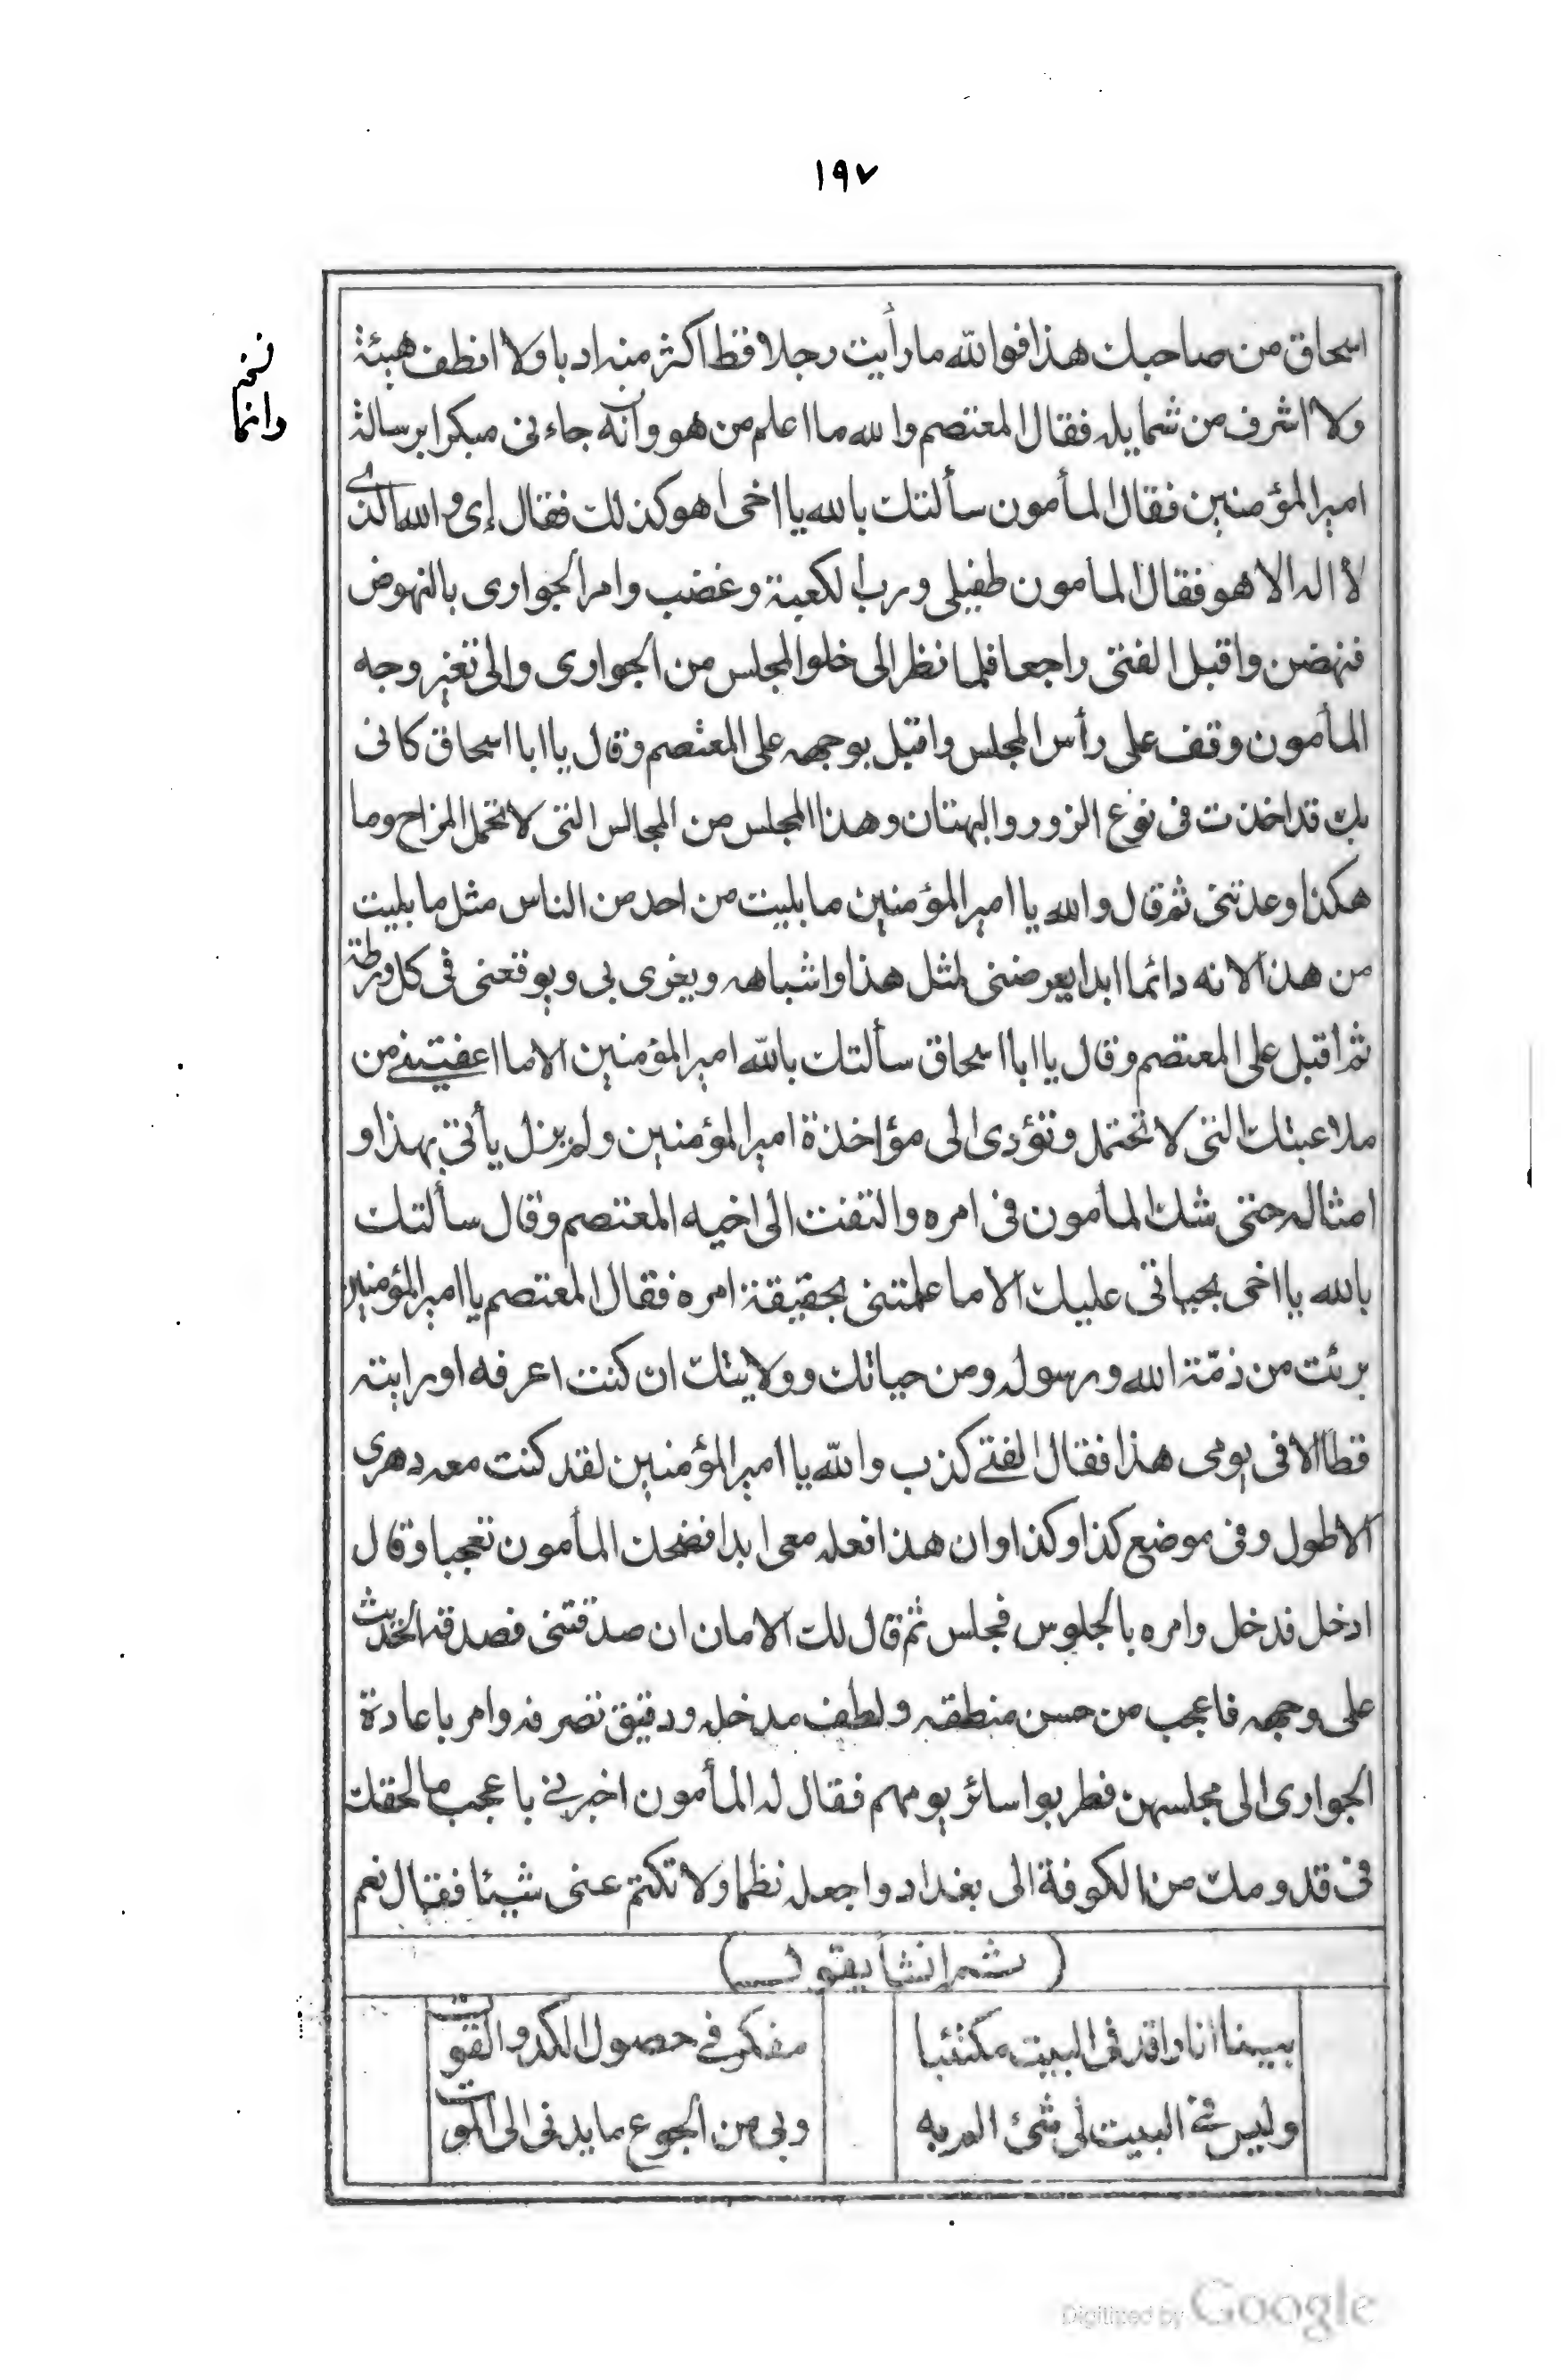 ١٩٧
اسحاق من صاحبك هذا فوالله ما رأيت رجلا قط اكثر منه ادبا ولا انظف هيئة
نسخه
وانما
ولا اشرف من شمايله فقال المعتصم والله ما اعلم من هو وانه جاءنى مبكرا برسالة
امير المؤمنين فقال المأمون سألتك بالله يا اخى اهو كذلك فقال إى والله الذى
لا اله الا هو فقال المأمون طفيلى ورب الكعبة وغضب وامر الجوارى بالنهوض
فنهضن واقبل الفتى راجعا فلما نظر الى خلو المجلس من الجوارى والى تغير وجه
المأمون وقف على رأس المجلس واقبل بوجهه على المعتصم وقال يا ابا اسحاق كانى
بك قد اخذت فى نوع الزور والبهتان وهذا المجلس من المجالس التى لا تحمل المزاح وما
هكذا وعدتنى ثم قال والله يا امير المؤمنين ما بليت من احد من الناس مثل ما بليت
من هذا لانه دائما ابدا يعرضنى لمثل هذا واشباهه ويغرى بى ويوقعنى فى كل ورطة
ثم اقبل على المعتصم وقال يا ابا اسحاق سألتك بالله امير المؤمنين الا ما اعفيتنى من
ملاعبتك التى لا تحتمل وتؤدى الى مؤاخذة امير المؤمنين ولم يزل يأتى بهذا و
امثاله حتى شك المأمون فى امره والتفت الى اخيه المعتصم وقال سألتك
بالله يا اخى بحياتى عليك الا ما علمتنى بحقيقة امره فقال المعتصم يا امير المؤمنين
برئت من ذمّة الله ورسوله ومن حياتك وولايتك ان كنت اعرفه او رايته
قط الا فى يومى هذا فقال الفتى كذب والله يا امير المؤمنين لقد كنت معه دهرى
الاطول وفى موضع كذا وكذا وان هذا فعله معى ابدا فضحك المأمون تعجبا وقال
ادخل فدخل وامره بالجلوس فجلس ثم قال لك الامان ان صدقتنى فصدقه الحديث
على وجهه فاعجب من حسن منطقه ولطف مدخله ودقيق تصرفه وامر باعادة
الجوارى الى مجلسهن فطربوا سائر يومهم فقال له المأمون اخبرنى باعجب ما لحقك
فى قدومك من الكوفة الى بغداد واجعله نظما ولا تكتم عنى شيئا فقال نعم
(ثم انشأ يقول)
بينما انا راقد فى البيت مكتئبا مفكر فى حصول الكد والقوت
وليس فى البيت لى شئ الم به وبى من الجوع ما يدنى الى الموت
Digitized by Google